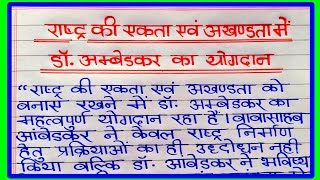 राष्ट्र की एकता एवं अखण्डता में
डॉ. अम्बेडकर का योगदान
“राष्ट्र की एकता एवं अखण्डता को
बनाए रखने में डॉ. अम्बेडकर का
महत्वपुर्ण योगदान रहा हैं। बावासाहब
आंबेडकर ने केवल राष्ट्र निर्माण
हेतु प्रक्रियाओं का ही उद्दीधन नही
किया बल्कि डॉ. आंबेडकर ने भविष्य